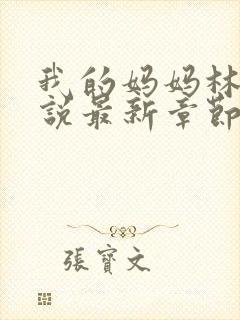 我的妈妈林
說最新章節
張寶文